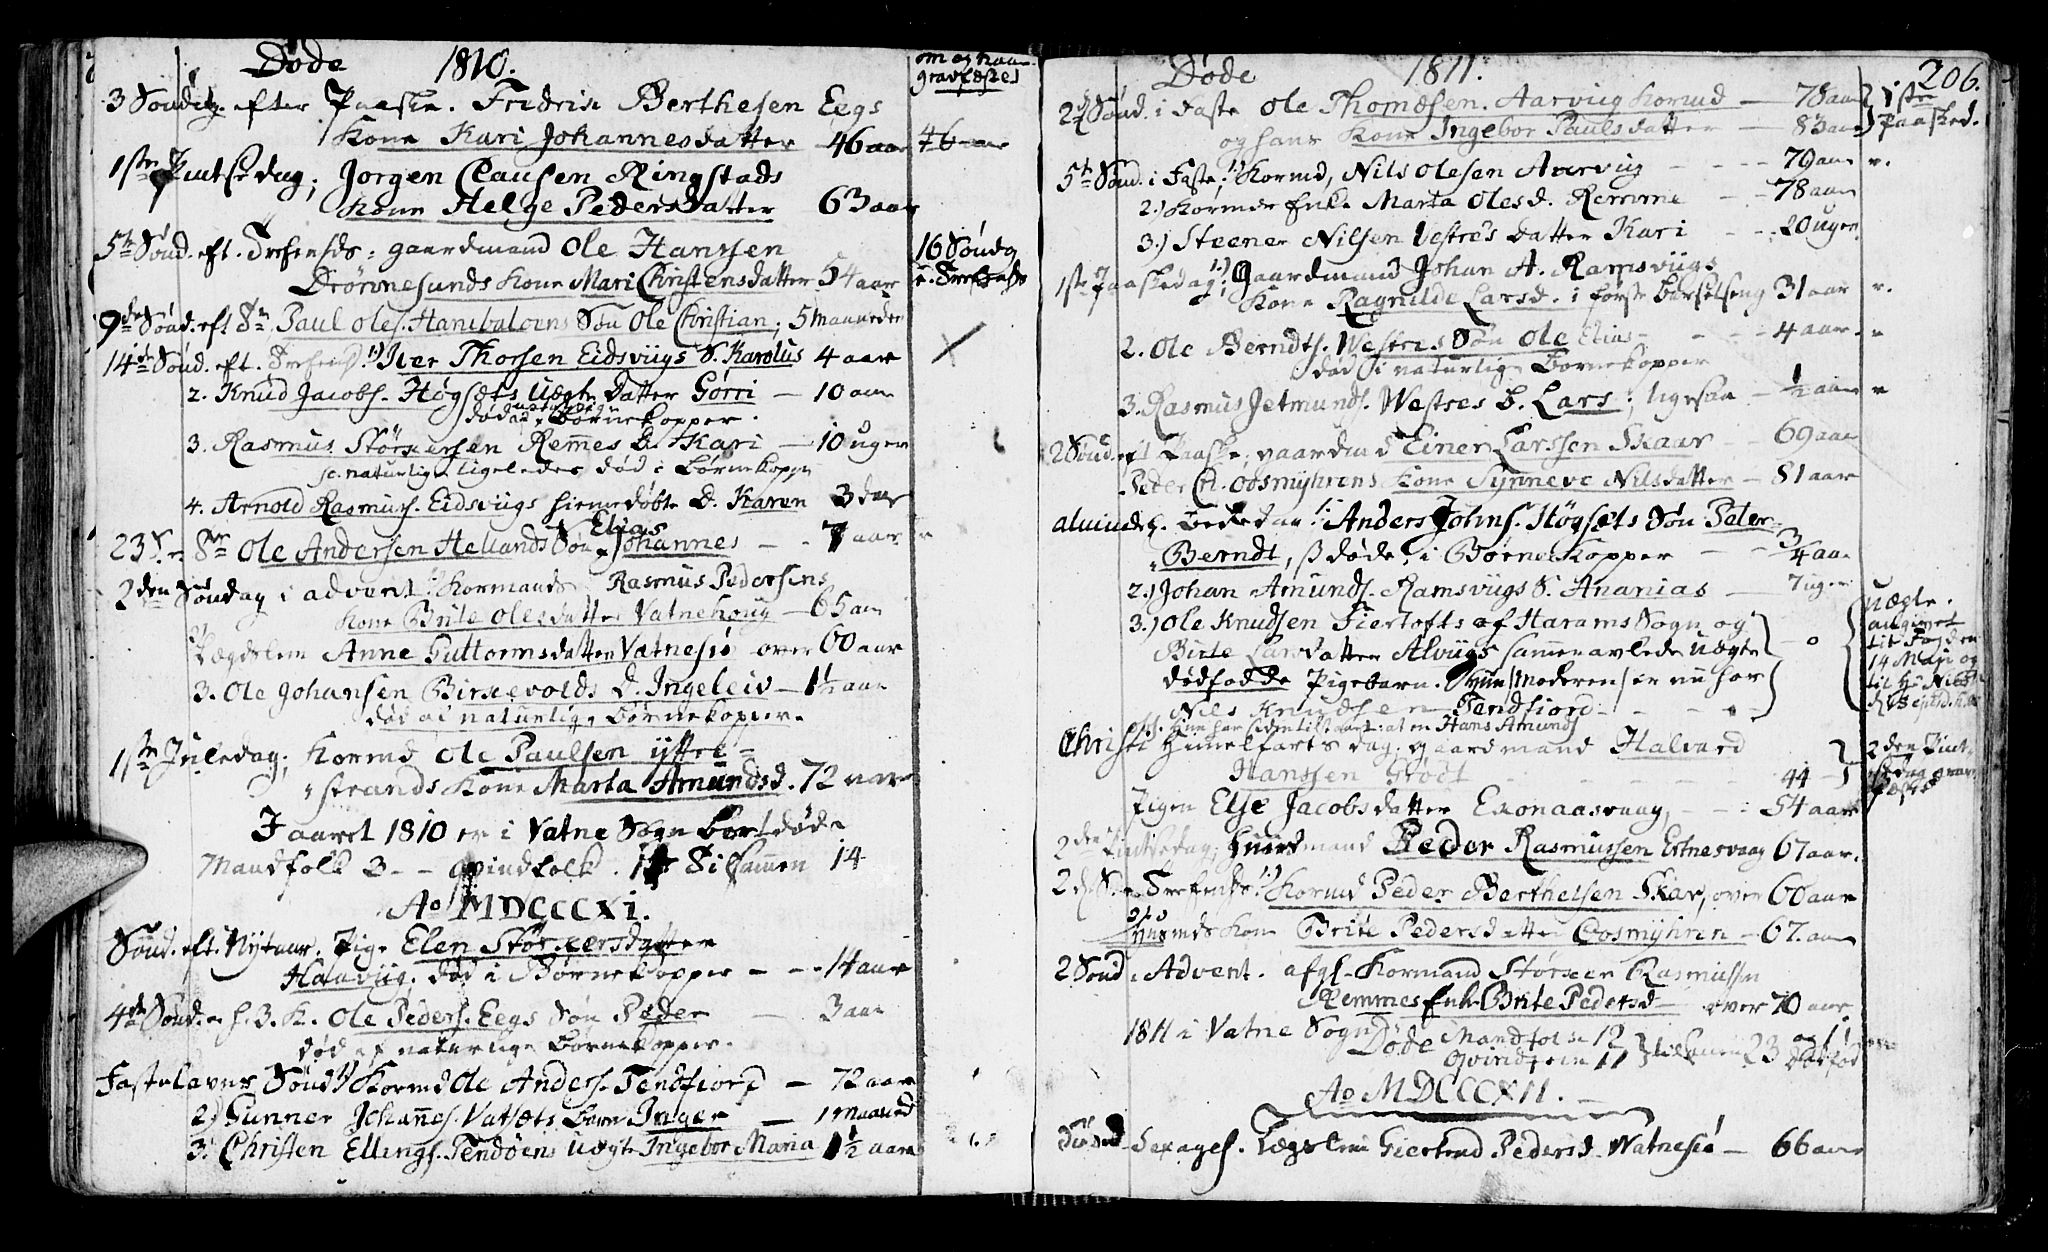 Døde 1810.
om og naar
gravfæstes
3 Søndag efter Paaske. Fridrik Berthelsen Eegs
Kone Kari Johannesdatter 46 aar
46 aar
1ste Pintsedag; Jørgen Clausen Ringstads
Kone Helge Pedersdatter 63 aar
5te Sønd. eft. Trefoldsh: gaardmand Ole Hanssen
16 Søndag
Drønnesunds Kone Mari Christensdatter 54 aar
e. Trefoldh
9de Sønd. eft Tr. Paul Oles. Søn Ole Christian; 5 Maaneder
14de Sønd. eft. Trefoldh. 1.) Iver Thorsen Eidsviigs S. Karolus 4 aar
2. Knud Jacobs. Høgsets uægte Datter Gørri — 10 aar
død af naturlige Børnekopper.
3. Rasmus Størkersen Remmes D. Kari — 10 uger
naturlige ligeledes død i Børnekopper
4. Arnold Rasmus. Eidsviigs hiemedøbte D. Karen 3 dage
23 S. e Tr Ole Andersen Hellands Søn Elias Johannes — - 7 aar
2den Søndag i Advent. Kormands Rasmus Pedersens
Kone Brite Olesdatter Vatnehoug — 65 aar
2) Lægdslem Anne Guttormsdatter Vatnesiø over 60 aar
3. Ole Johansen Birkevolds D. Ingeleiv — 1½ aar
død af naturlige Børnekopper.
1ste Juledag; Kormd Ole Paulsen yttre=
strands Kone Marta Amundsd. 72 aar
I aaret 1810 er i Vatne Sogn bortdøde
Mandfolk 3 - - qvindfolk 11 Tilsammen 14
Ao MDCCCXI.
Sønd. eft. Nytaar. Pige Elen Størkersdatter
Helleviig. død i Børnekopper - - 14 aar
4de Sønd. e. h. 3. K. Ole Peders. Eegs Søn Peder — 3 aar
død af naturlige Børnekopper.
Fastelavns Sønd 1) Kormd Ole Anders. Tendfiord — 72 aar
2) Gunner Johannes. Vatsets Barn Inger — 1 Maaned
3. Christen Ellings. Tendøens uægte Ingebor Maria 1½ aar
Døde 1811.
206.
2d Sønd. i Faste Ole Thomesen Aarviig Kormd — 78 aar
1ste
og hans Kone Ingebor Paulsdatter — 83 aar
Paasked.
5te Sønd. i Faste; 1) Kormd, Nils Olesen Aarviig - - - 79 aar
2.) Kormds Enke Marta Olesd. Remme - - 78 aar
3.) Steener Nilsen Vestres datter Kari - - 20 uger
1ste Paaskedag; 1.) Gaardmand Johan A. Ramsviigs
Kone Ragnilde Larsd. i første barselseng 31 aar
2. Ole Berndts. Westres Søn Ole Elias - - - 4 aar
død i naturlige Børnekopper
3. Rasmus Jetmunds. Westres b. Lars; ligesaa — ½ aar
2 Sønd. eft Paaske; gaardmd Einer Larssen Skaar - - 69 aar
Peder Ch. Oosmyhrens Kone Synneve Nilsdatter — 81 aar
almindel. Bededag 1) Anders Johns. Høgsets Søn Peter
Berndt, døde i Børnekopper - - ¾ aar
2.) Johan Amunds. Ramsviigs S. Ananias — 7 uger
3.) Ole Knudsen Fiertofts af Harams Sogn og
Birte Larsdatter Alviigs sammenavlede uægte
dødfødde Pigebarn. Hun /Moderen/ er nu hos
Nils Knudsen Tendfiord
uægte.
angivet
til Fogden
14 Maji og
Hun har siden tilstaaet at en Hans Amunds
Christi Himmelfarts dag; gaardmand Halvard
Hanssen Grødt - - - 44
2den Pint
Pigen Else Jacobsdatter Exonaasvaag, - - 54 aar
2den Pintsedag; Huusmand Peder Rasmussen Estnesvaag 67 aar.
2d S. e Trefoldh 1.) Kormd Peder Berthelsen Skar, over 60 aar
2) Huusmds Kone Brite Pedersdatter Oosmyhren — 67. aar
2 Sønd. i Advent. afgl. Kormand Størker Rasmussen
Remmes Enke Brite Pedersd — over 70 aar
1811 i Vatne Sogn Døde Mandfolk 12
Qvindfolk 11 } tilsammen 23 og 1 dødfød
Ao MDCCCXII.
Sexages. Lægdslem Giertrud Pedersd. Watnesiø — 66 aar